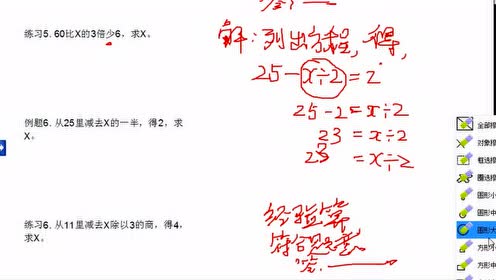 练习5. 60比X的3倍少6，求X。
解：列出方程，得，
25-x÷2=2
例题6. 从25里减去X的一半，得2，求
X。
25-2=x÷2
23=x÷2
23=x÷2
练习6. 从11里减去X除以3的商，得4，
求X。
经验算
符合题意
答：
全部擦
对象擦
框选擦
圈选擦
圆形小
圆形中
圆形大
方形小
方形中